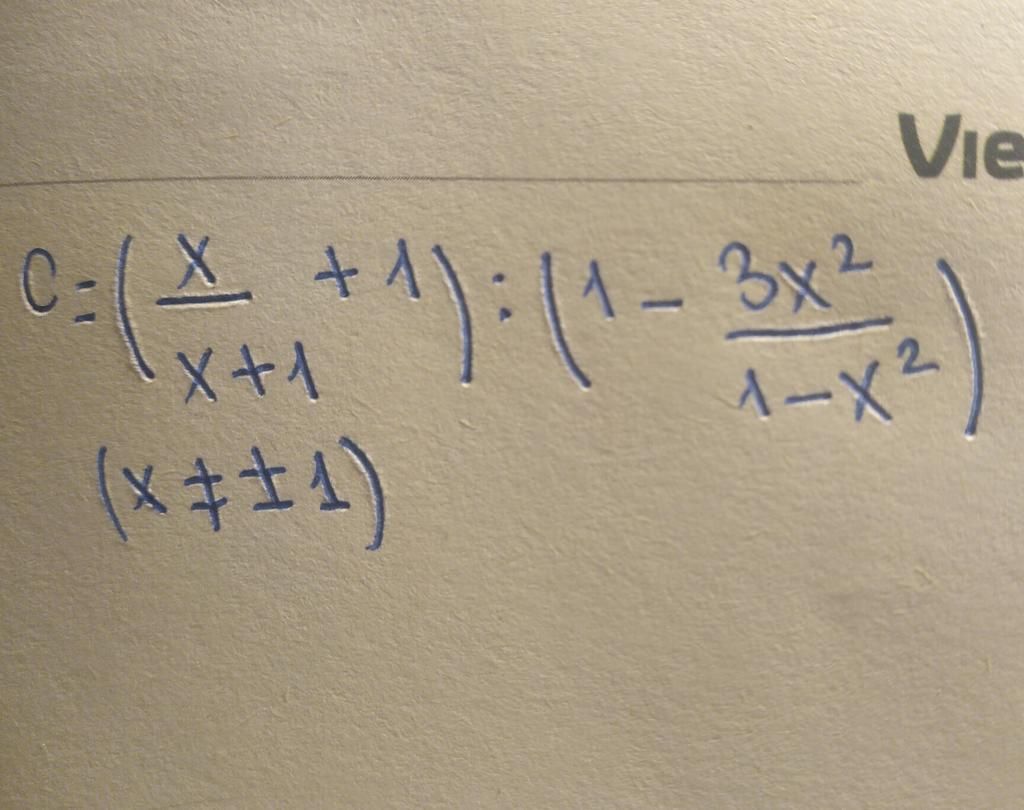 Vie
C = (x/(x+1) + 1) : (1 - 3x²/(1-x²))
(x ≠ ± 1)